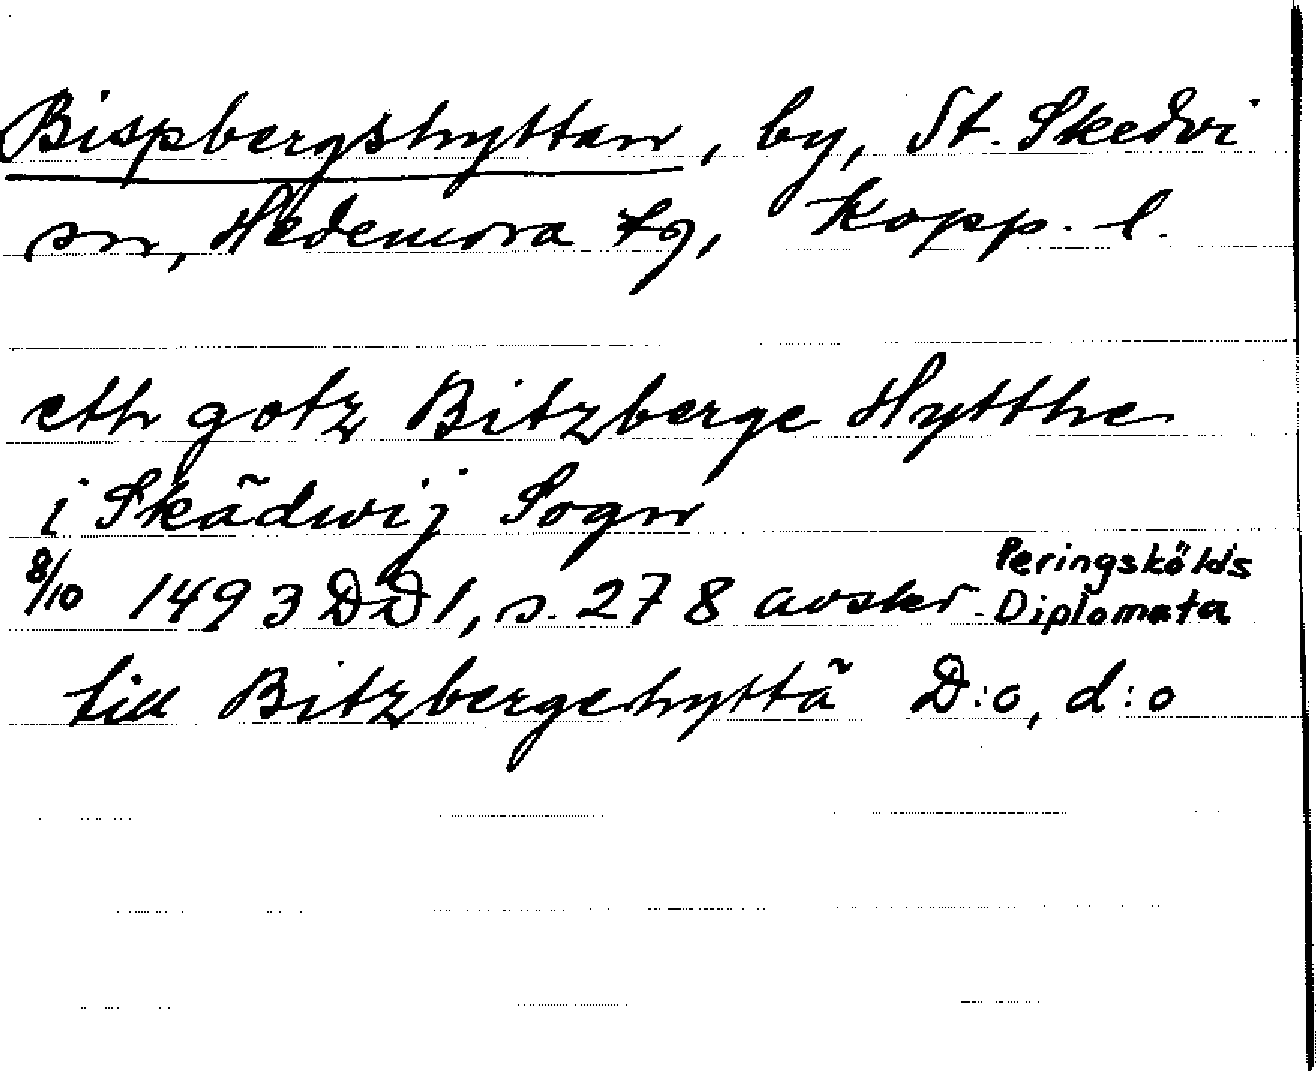 Bispbergshyttan, by, St. Skedvi
sn, Hedemora tg, Kopp. l.
eth gotz Bitzberge Hytthe
i Skädwij Sogn
8/10 1493 DD1, s. 278 avskr. Peringskölds Diplomata
till Bitzbergehyttã D:o, d:o